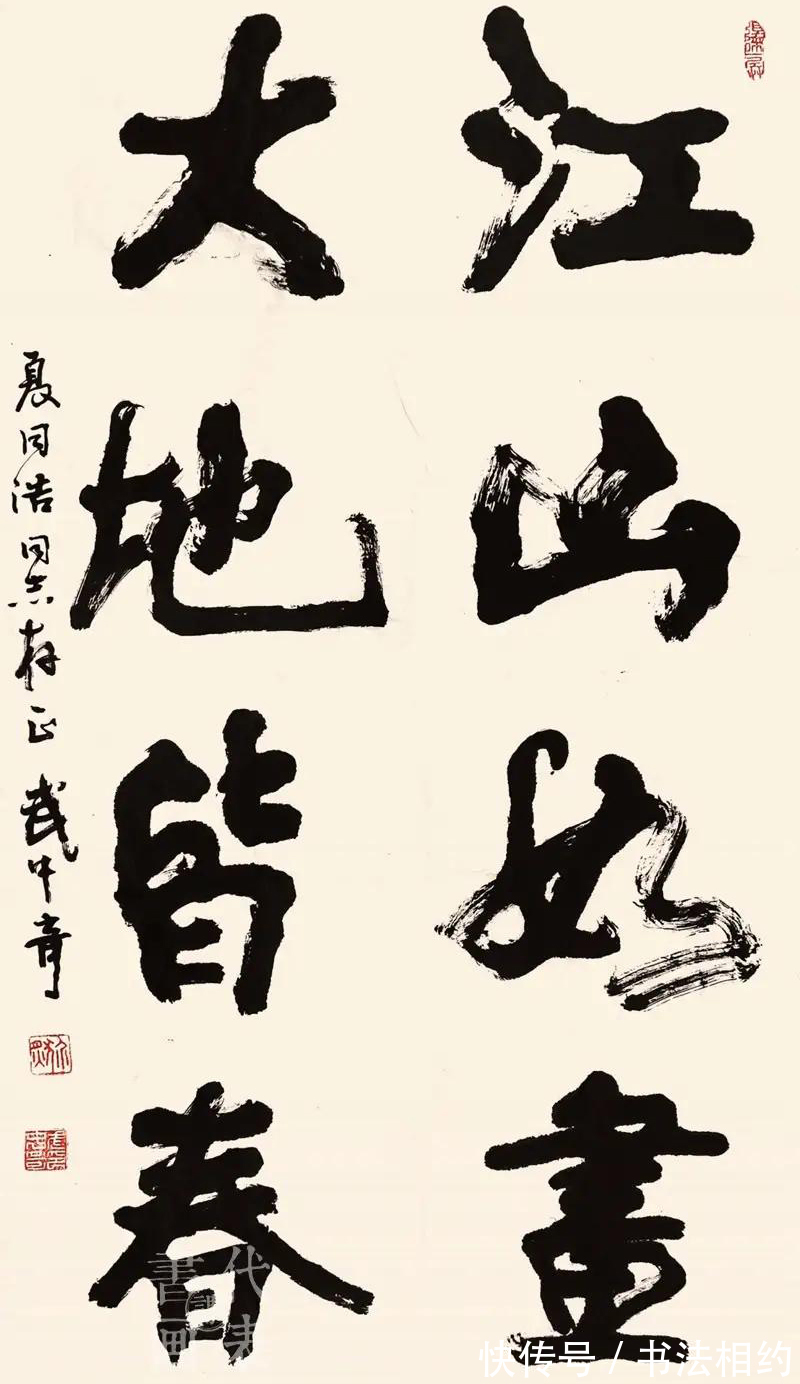 江山如畫
大地皆春
夏同浩同志存正 武中奇
代表書画
快传号 / 书法相约